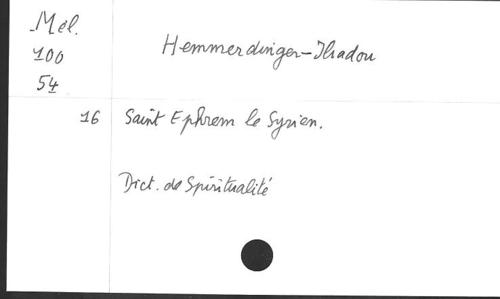 Mél.
100
54
Hemmerdinger-Iliadou
16 Saint Ephrem le Syrien.
Dict. de Spiritualité